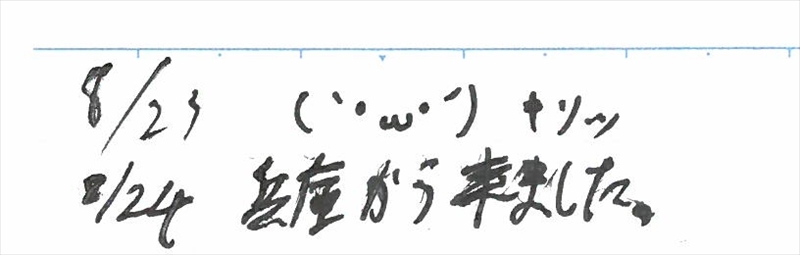 8/23 (`・ω・´) キリッ
8/24 兵庫から来ました。